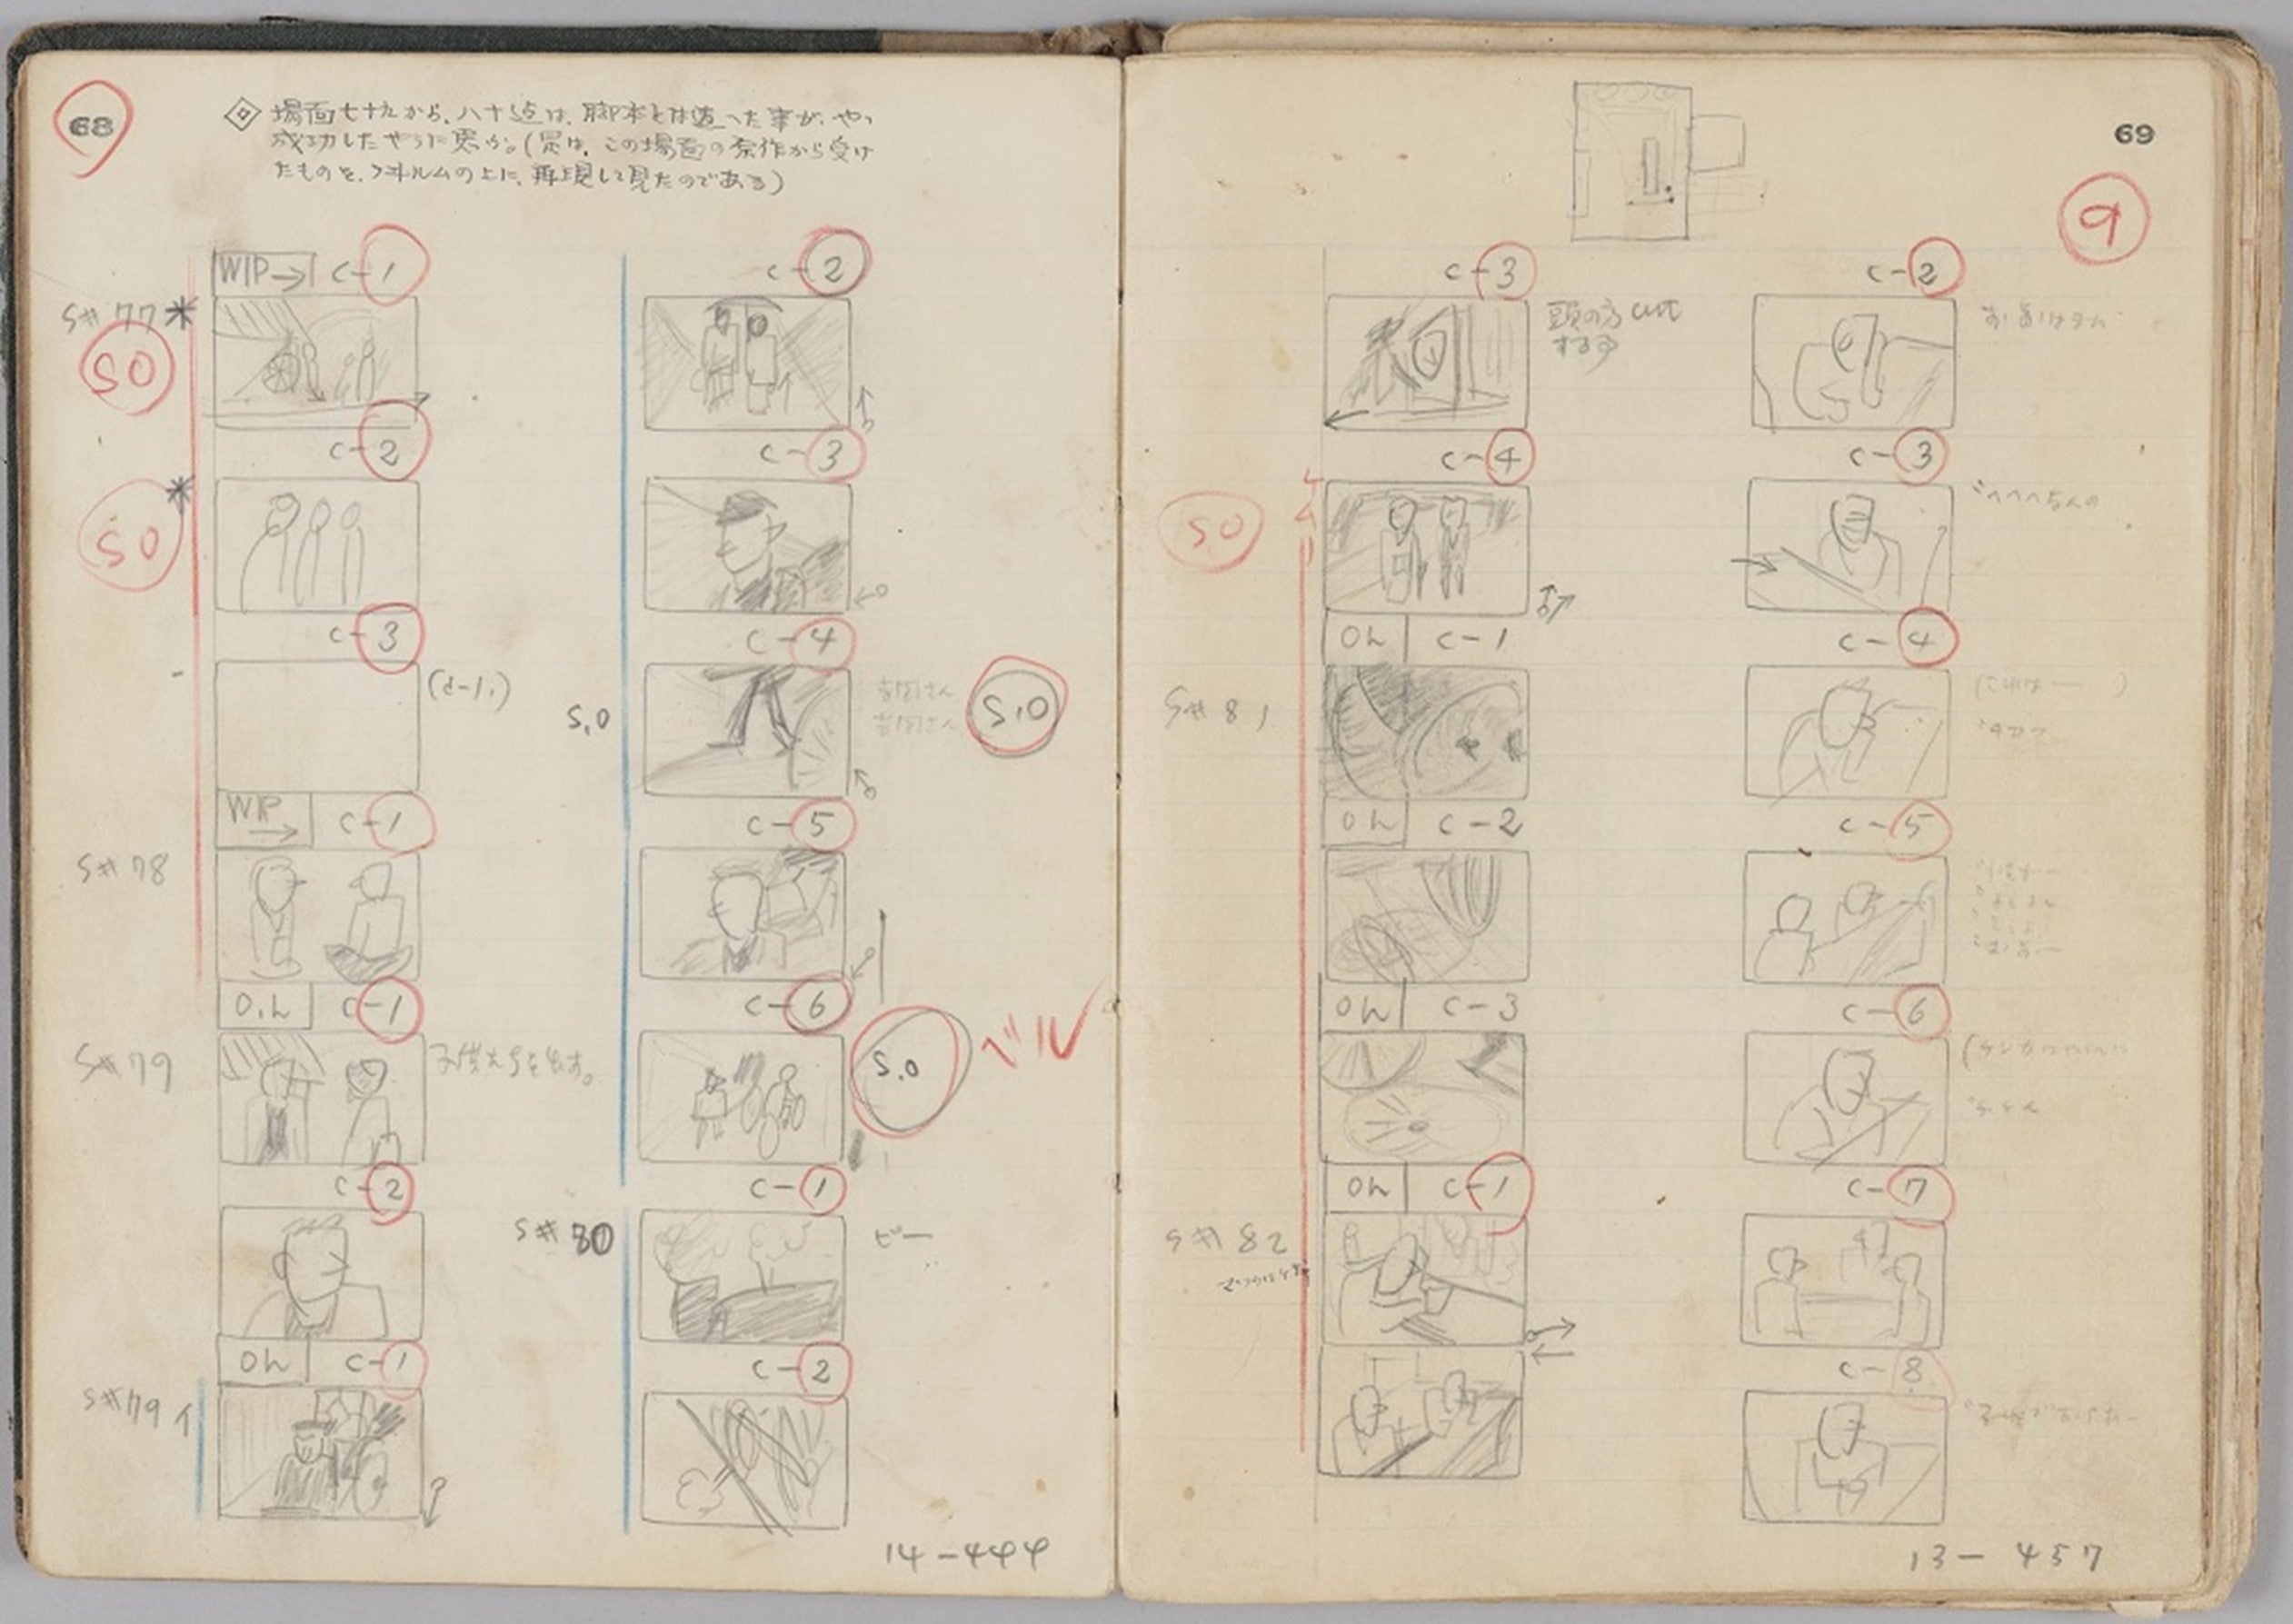 68
場面七十九から、八十迠は、脚本とは違った事が、やゝ
成功したやうに思ふ。(実は、この場面の原作から受け
たものを、フヰルムの上に、再現して見たのである)
WIP→ C-1
S#77
SO
C-2
SO
C-3
(C-1,)
WIP→ C-1
S#78
O.L C-1
S#79
子供たちを出す。
C-2
OL C-1
S#79 イ
C-2
C-3
C-4
S.O
吉岡さん
吉岡さん
S.O
C-5
C-6
S.O
ベル
C-1
S#80
ピー
C-2
14-444
69
9
C-3
頭の方 cut
する事
C-4
SO
OL C-1
S#81
OL C-2
OL C-3
OL C-1
S#82
C-2
C-3
C-4
(これは― )
C-5
C-6
C-7
C-8
13-457